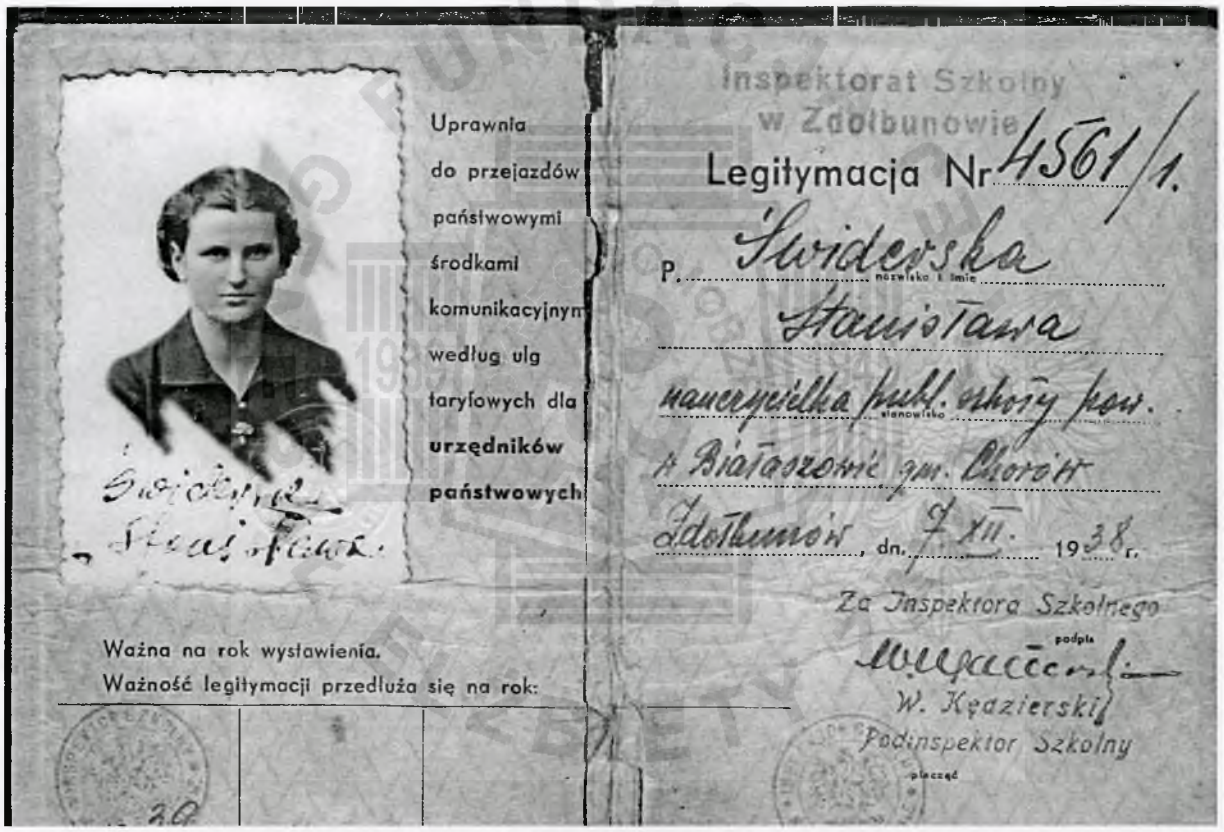 Uprawnia
do przejazdów
państwowymi
środkami
komunikacyjnym
według ulg
taryfowych dla
urzędników
państwowych
Stanisława
Ważna na rok wystawienia.
Ważność legitymacji przedłuża się na rok:
39
Inspektorat Szkolny
w Zdołbunowie
Legitymacja Nr 4561/1.
P. Świderska
nazwisko i imię
Stanisława
nauczycielka publ. szkoły pow.
stanowisko
w Białaszowie gm. Chorów
Zdołbunów, dn. 7 XII. 1938 r.
Za Inspektora Szkolnego
podpis
W. Kędzierski
Podinspektor Szkolny
pieczęć